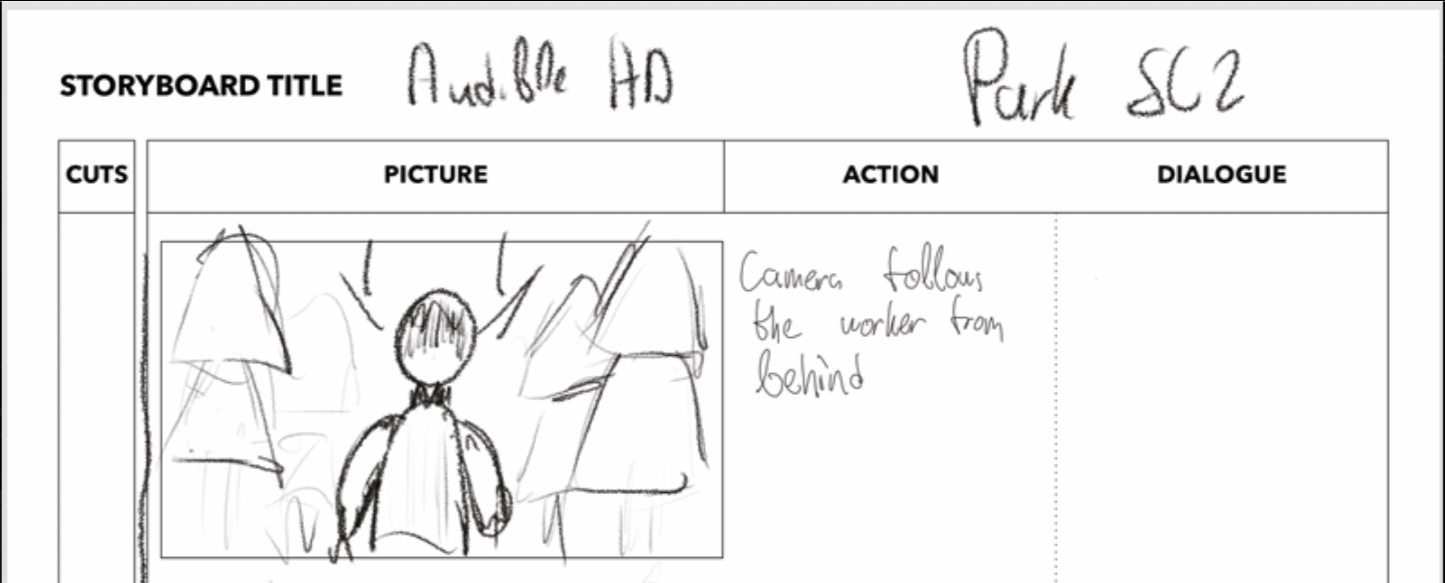 STORYBOARD TITLE Audible HD Park SC2
CUTS PICTURE ACTION DIALOGUE
Camera follows
the worker from
behind